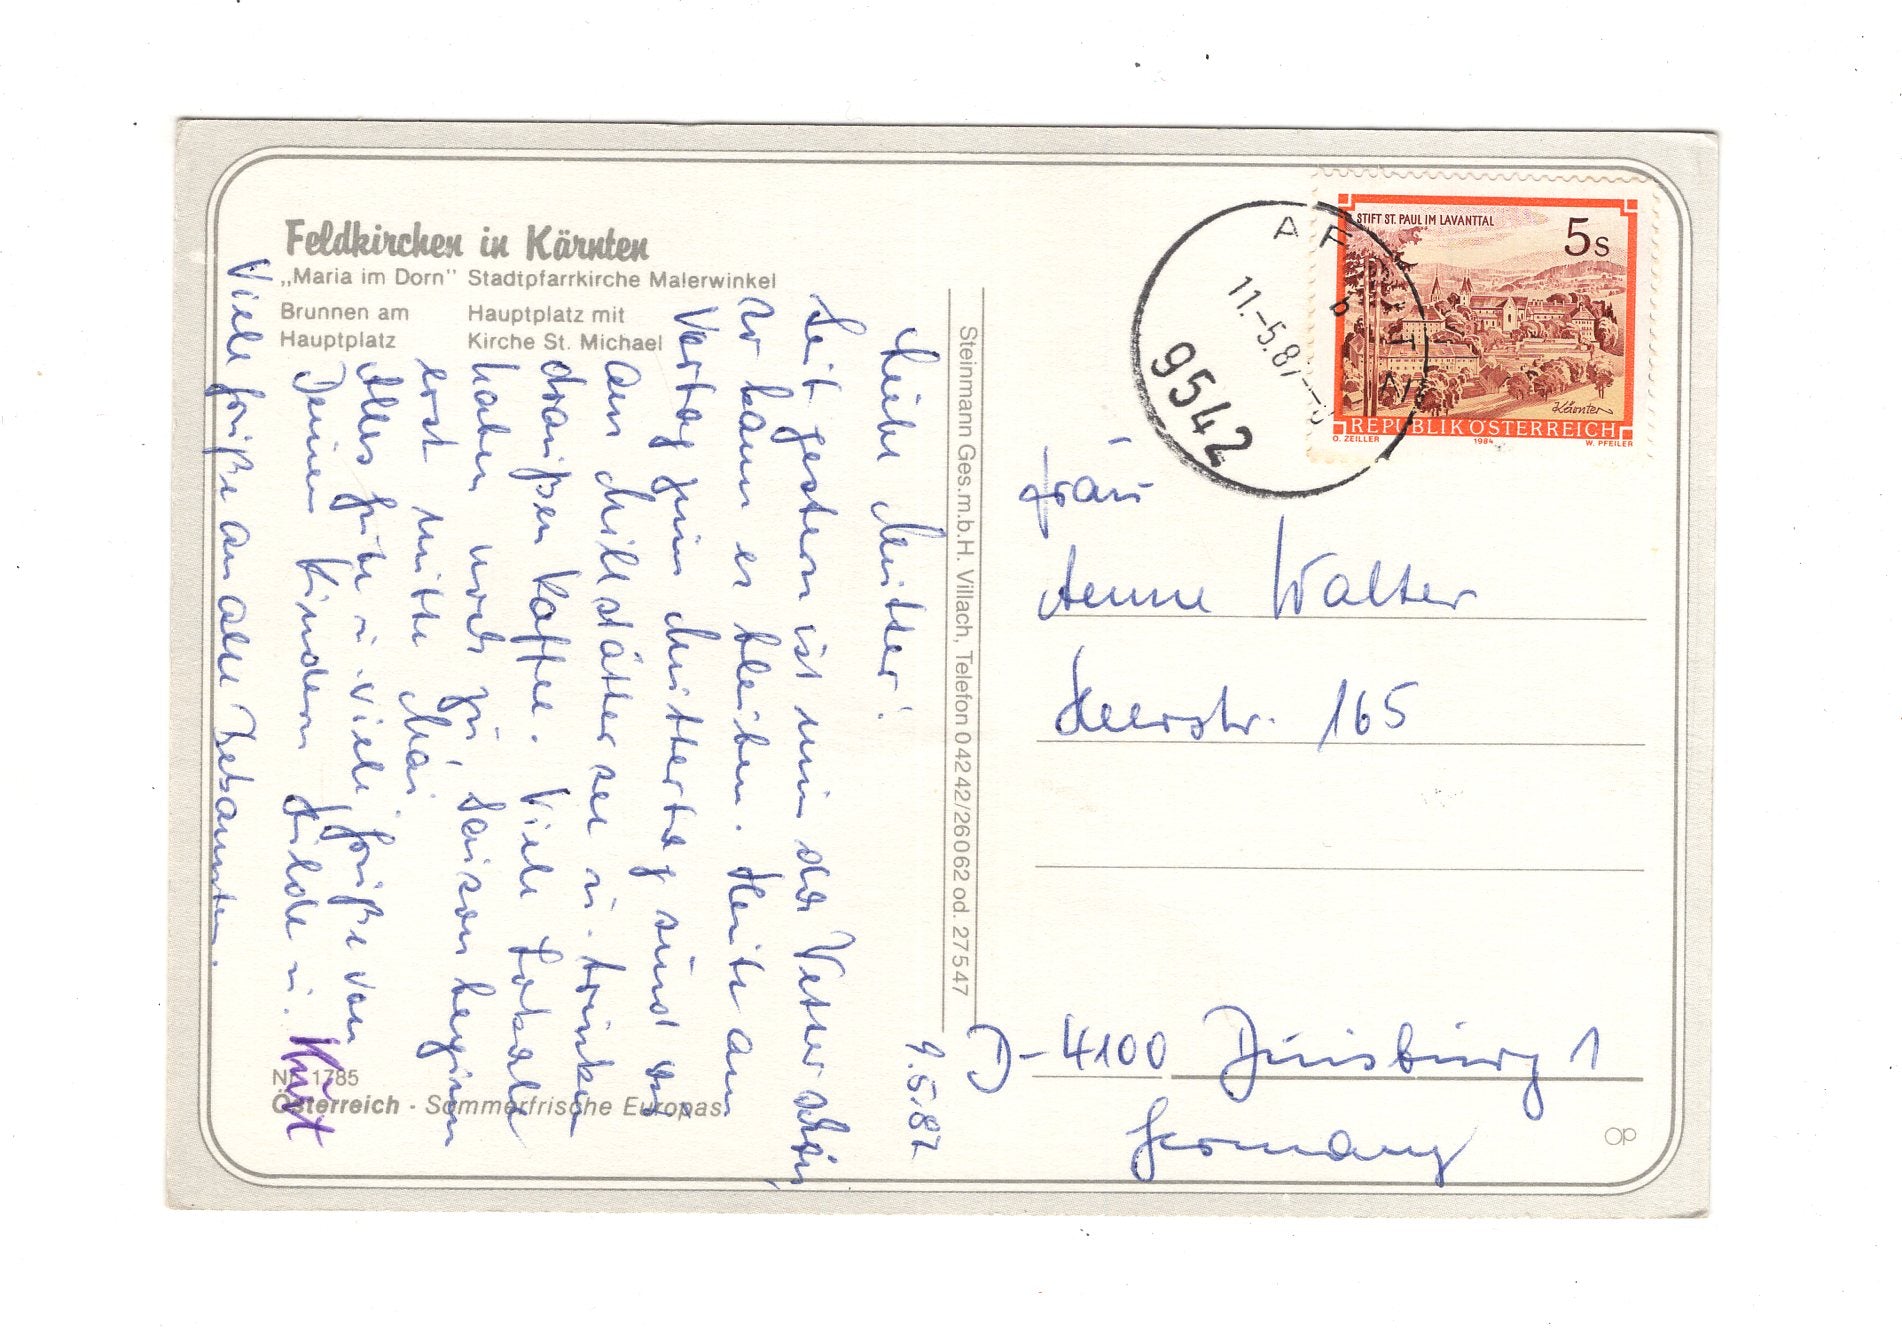 Feldkirchen in Kärnten
„Maria im Dorn" Stadtpfarrkirche Malerwinkel
Brunnen am Hauptplatz
Hauptplatz mit Kirche St. Michael
9.5.87
Liebe Mutter!
Seit gestern ist nun das Wetter schön,
so kann es bleiben. Heute am
Vortag zum Muttertag sind wir
am Millstätter see u. trinken
draußen Kaffee. Viele Lokale
haben noch zu, Saison beginn
erst mitte Mai.
Alles gute u. viele Grüße von
Deinen Kindern Hilde u. Kurt
Viele Grüße an alle Bekannten.
Nr. 1785
Österreich - Sommerfrische Europas
Steinmann Ges.m.b.H. Villach, Telefon 04242/26062 od. 27547
STIFT ST. PAUL IM LAVANTTAL
5s
Kärnten
REPUBLIK ÖSTERREICH
O. ZEILLER 1984 W. PFEILER
11.-5.87
9542
Frau
Aenne Walter
Heerstr. 165
D-4100 Duisburg 1
Germany
OP